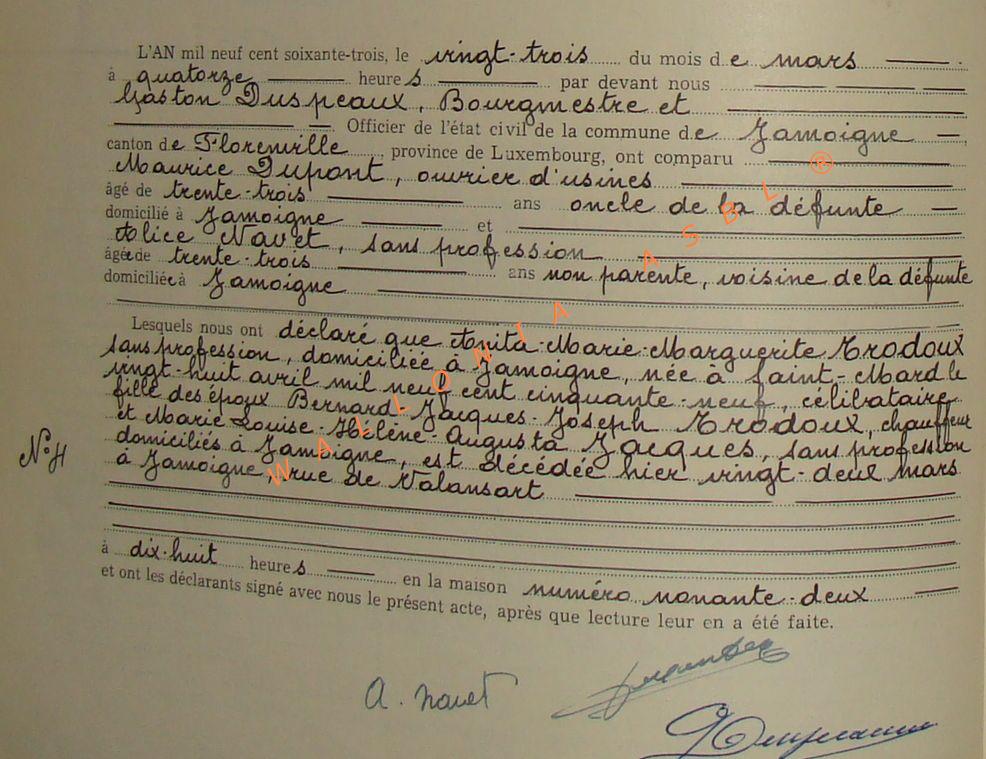 L'AN mil neuf cent soixante-trois, le vingt-trois du mois de mars
à quatorze heures par devant nous
Gaston Duspeaux, Bourgmestre et
Officier de l'état civil de la commune de Jamoigne
canton de Florenville, province de Luxembourg, ont comparu
Maurice Dupont, ouvrier d'usines
âgé de trente-trois ans oncle de la défunte
domicilié à Jamoigne et
Alice Navet, sans profession
âgée de trente-trois ans non parente, voisine de la défunte
domiciliée à Jamoigne
Lesquels nous ont déclaré que Anita-Marie-Marguerite Trodoux
sans profession, domiciliée à Jamoigne, née à Saint-Mard le
vingt-huit avril mil neuf cent cinquante-neuf, célibataire
fille des époux Bernard-Jacques-Joseph Trodoux, chauffeur
et Marie Louise-Hélène-Augusta Jacques, sans profession
N°4 domiciliés à Jamoigne, est décédée hier vingt-deux mars
à Jamoigne, rue de Valansart
à dix-huit heures en la maison numéro nonante-deux
et ont les déclarants signé avec nous le présent acte, après que lecture leur en a été faite.
A. Navet
WALLONIA ASBL ®